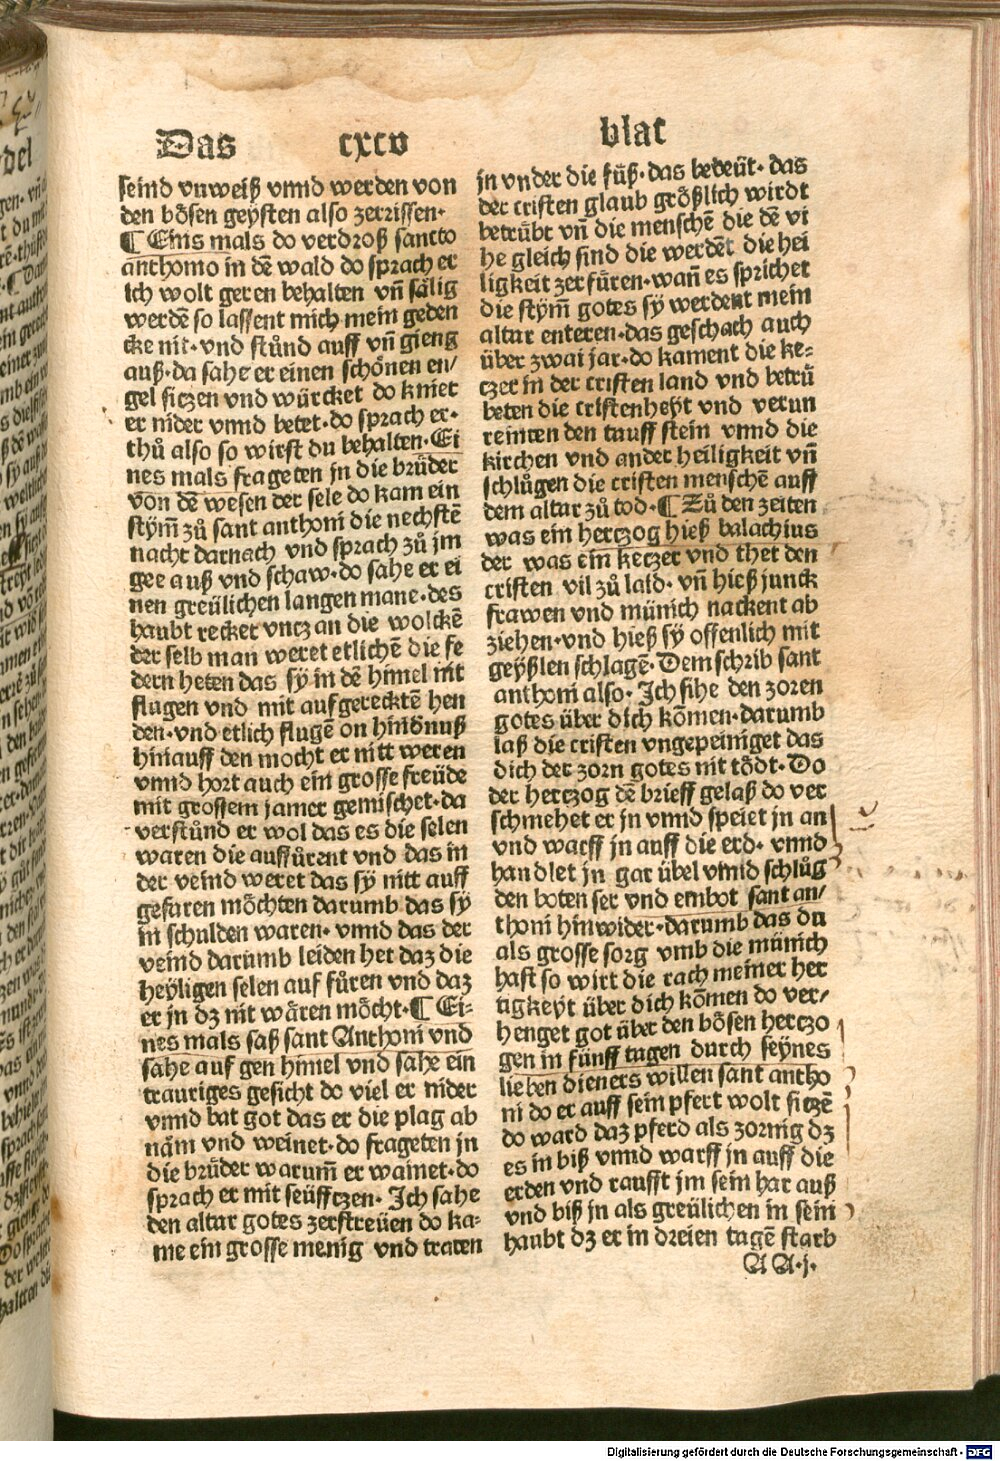 Das cxcv blat
seind vnweiß vnnd werden von
den bösen geysten also zerrissen·
¶ Eins mals do verdroß sancto
anthonio in dē wald do sprach er
ich wolt geren behalten vñ sälig
werdē so lassent mich mein geden
cke nit·vnd stůnd auff vñ gieng
auß·da sahe er einen schönen en/
gel siczen vnd würcket do kniet
er nider vnnd betet·do sprach er·
thů also so wirst du behalten·Ei
nes mals frageten in die brüder
von dē wesen der sele do kam ein
stym̄ zů sant anthoni die nechstē
nacht darnach vnd sprach zů jm
gee auß vnd schaw·do sahe er ei
nen greülichen langen mane·des
haubt recket vncz an die wolckē
der selb man weret etlichē die fe
dern heten das sÿ in dē himel nit
flugen vnd mit aufgerecktē hen
den·vnd etlich flugē on hindnuß
hinauff den mocht er nitt weren
vnnd hort auch ein grosse freüde
mit grossem jamer gemischet·da
verstůnd er wol das es die selen
waren die auffůrent vnd das in
der veind weret das sÿ nitt auff
gefaren möchten darumb das sÿ
in schulden waren· vnnd das der
veind darumb leiden het daz die
heÿligen selen auf fůren vnd daz
er jn dz nit wären möcht·¶ Ei⸗
nes mals saß sant Anthoni vnd
sahe auf gen himel vnd sahe ein
trauriges gesicht do viel er nider
vnnd bat got das er die plag ab
näm vnd weinet·do frageten jn
die brüder warum̄ er wainet·do
sprach er mit seüfftzen· Ich sahe
den altar gotes zerstreüen do ka⸗
me ein grosse menig vnd traten
jn vnder die füß·das bedeüt·das
der cristen glaub größlich wirdt
betrübt vñ die menschē die dē vi
he gleich sind die werdēt die hei
ligkeit zerfüren·wañ es sprichet
die stym̄ gotes sÿ werdent mein
altar enteren·das geschach auch
über zwai jar·do kament die ke⸗
czer in der cristen land vnd betrü
beten die cristenheÿt vnd verun
reinten den tauff stein vnnd die
kirchen vnd ander heiligkeit vñ
schlůgen die cristen menschē auff
dem altar zů tod·¶ Zů den zeiten
was ein herczog hieß balachius
der was ein keczer vnd thet den
cristen vil zů laid· vñ hieß junck
frawen vnd münich nackent ab
ziehen·vnd hieß sÿ offenlich mit
geÿßlen schlagē·Dem schrib sant
anthoni also· Ich sihe den zoren
gotes über dich kōmen·darumb
laß die cristen vngepeiniget das
dich der zorn gotes nit tödt·Do
der herczog dē brieff gelaß do ver
schmehet er jn vnnd speiet jn an
vnd warff jn auff die erd· vnnd
handlet jn gar übel vnnd schlůg
den boten ser vnd embot sant an/
thoni hinwider·darumb das du
als grosse sorg vmb die münich
hast so wirt die rach meiner her
tigkeÿt über dich kōmen do ver/
henget got über den bösen herczo
gen in fünff tagen durch seÿnes
lieben dieners willen sant antho
ni do er auff sein pfert wolt siczē
do ward daz pferd als zornig dz
es in biß vnnd warff jn auff die
erden vnd raufft jm sein har auß
vnd biß jn als greülichen in sein
haubt dz er in dreien tagē starb
A A·j·
Digitalisierung gefördert durch die Deutsche Forschungsgemeinschaft - DFG